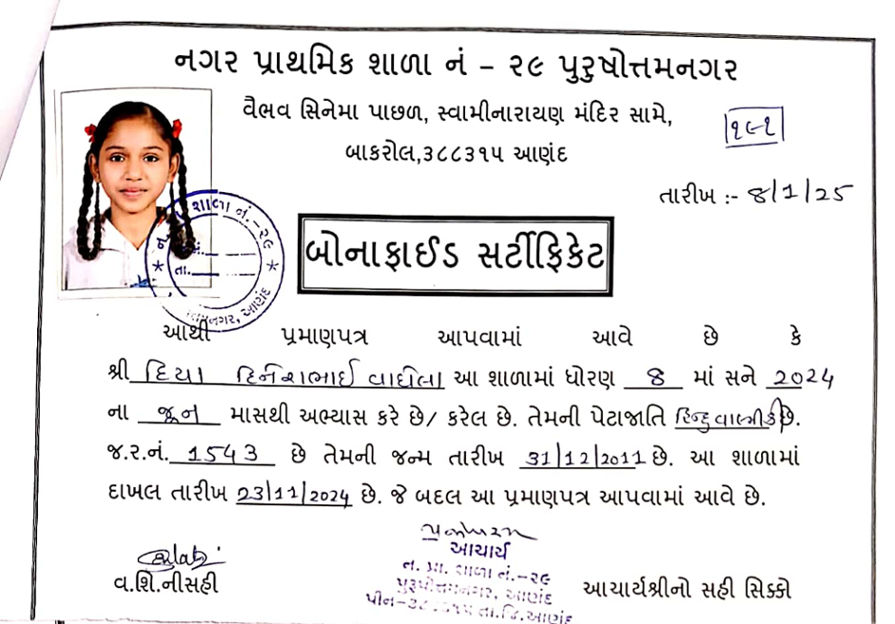 નગર પ્રાથમિક શાળા નં - ૨૯ પુરુષોત્તમનગર
વૈભવ સિનેમા પાછળ, સ્વામીનારાયણ મંદિર સામે,
બાકરોલ,૩૮૮૩૧૫ આણંદ
૧૯૧
તારીખ :- 8/1/25
શાળા નં.-૨૯
તા.
નગર, આણંદ
બોનાફાઈડ સર્ટીફિકેટ
આથી પ્રમાણપત્ર આપવામાં આવે છે કે
શ્રી દિયા દિનેશભાઈ વાઘેલા આ શાળામાં ધોરણ 8 માં સને 2024
ના જૂન માસથી અભ્યાસ કરે છે/ કરેલ છે. તેમની પેટાજાતિ હિન્દુ વાલ્મીકી છે.
જ.ર.નં. 1543 છે તેમની જન્મ તારીખ 31/12/2011 છે. આ શાળામાં
દાખલ તારીખ 23/11/2024 છે. જે બદલ આ પ્રમાણપત્ર આપવામાં આવે છે.
આચાર્ય
ન. પ્રા. શાળા નં.-૨૯
પુરુષોત્તમનગર, આણંદ
પીન-૩૮૮૩૧૫ તા.જિ.આણંદ
વ.શિ.નીસહી
આચાર્યશ્રીનો સહી સિક્કો